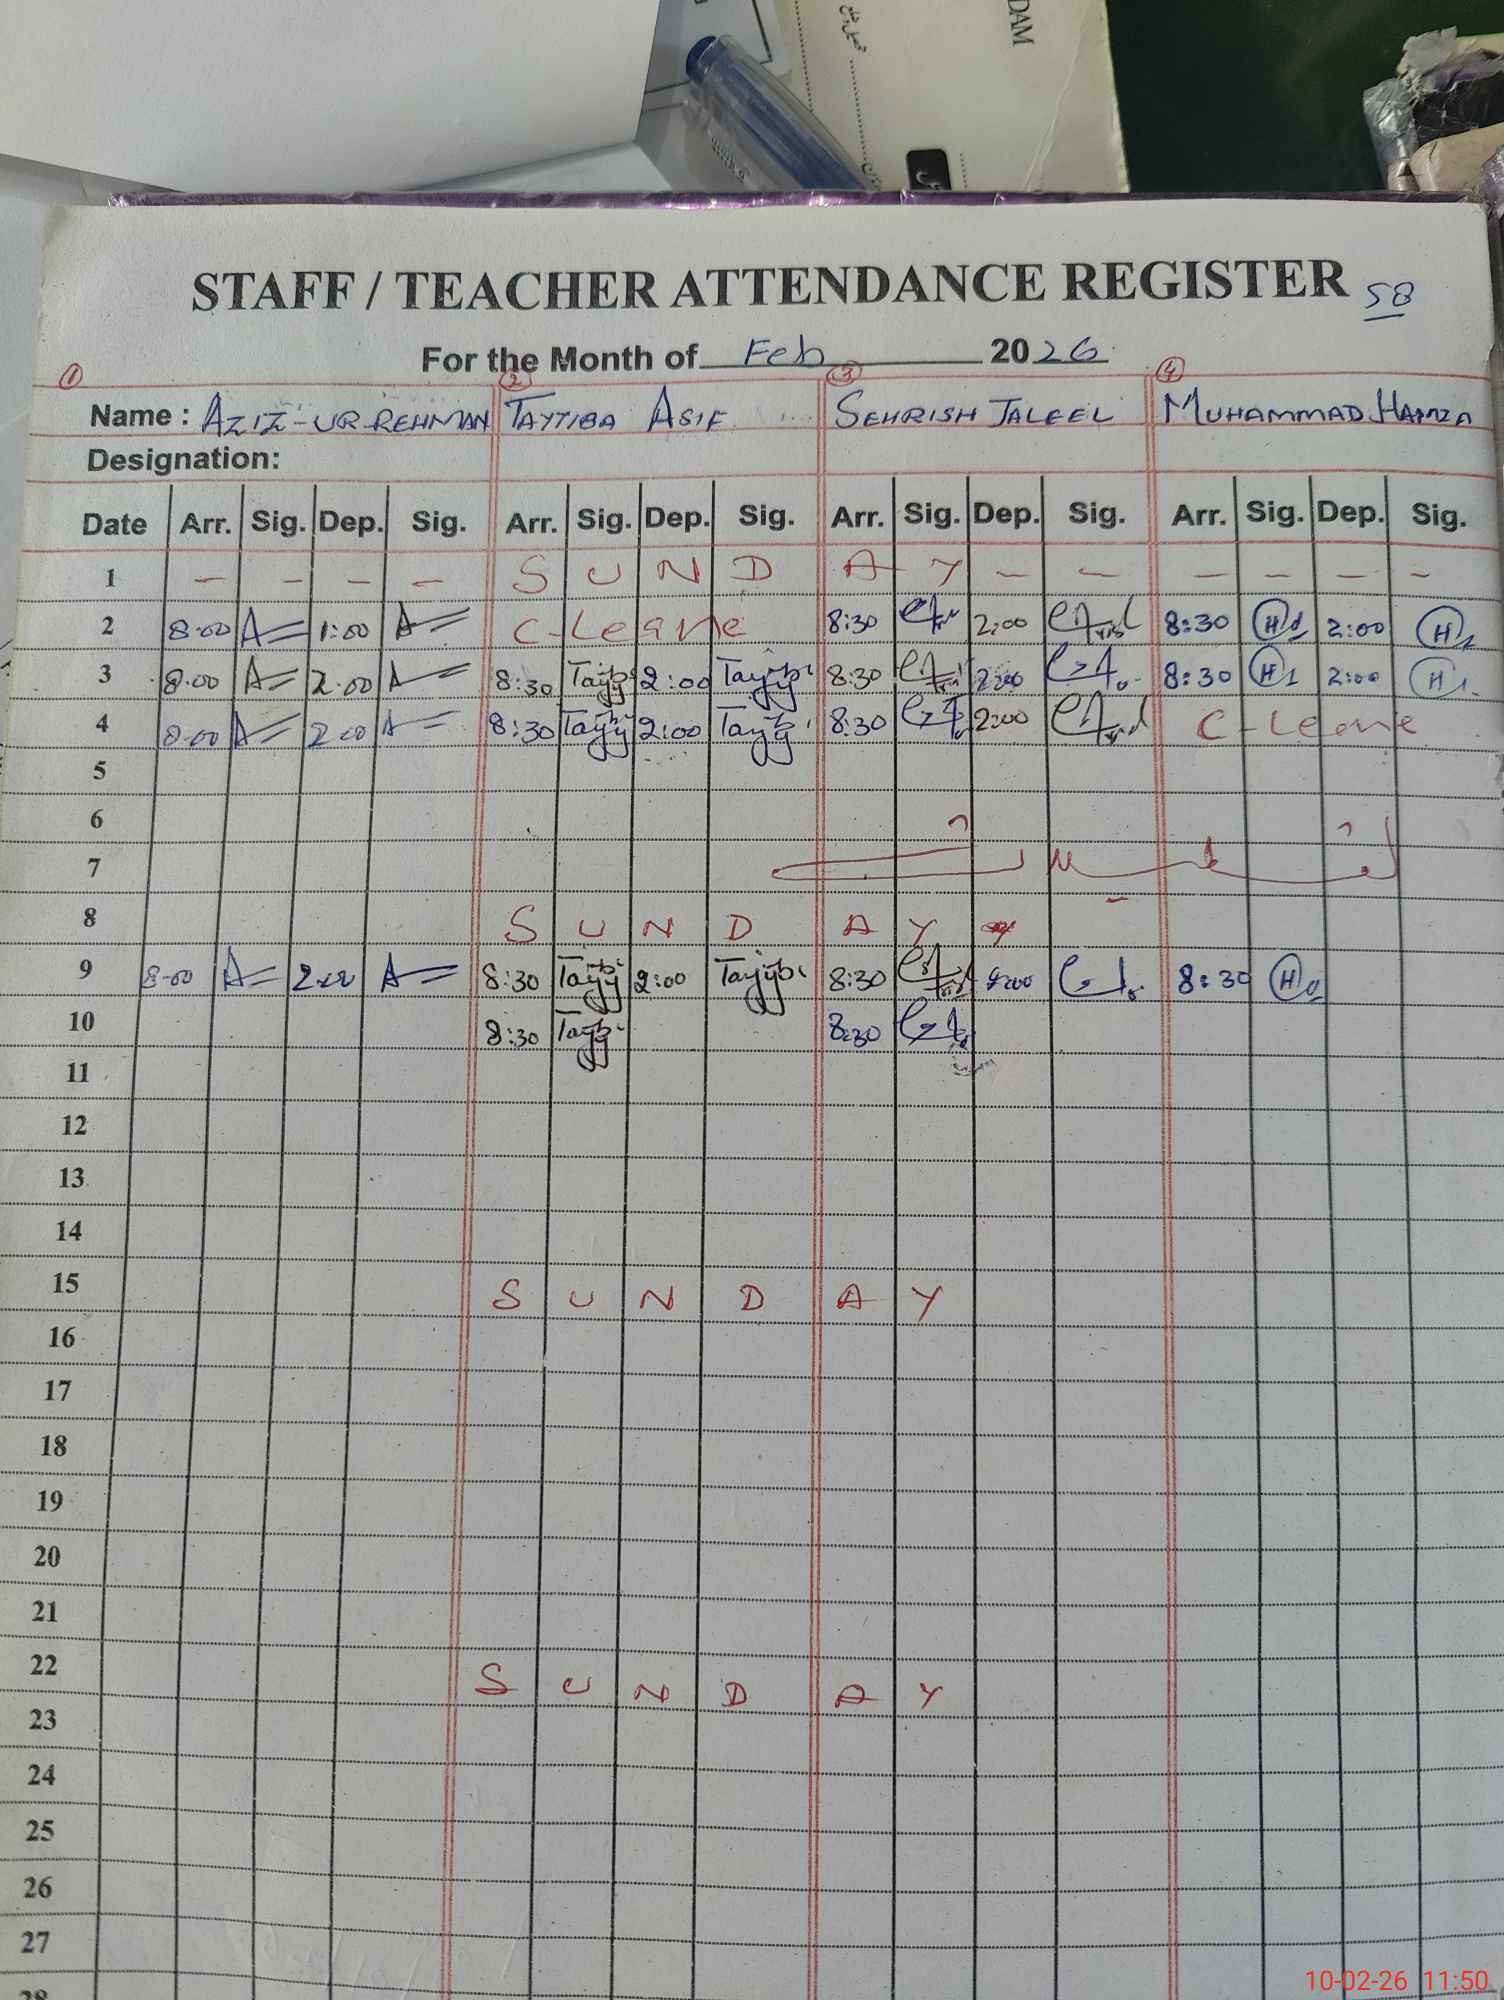 DAM
STAFF / TEACHER ATTENDANCE REGISTER 58
For the Month of Feb 2026
1 2 3 4
Name : AZIZ-UR-REHMAN TAYYIBA ASIF SEHRISH JALEEL MUHAMMAD HAMZA
Designation:
Date Arr. Sig. Dep. Sig. Arr. Sig. Dep. Sig. Arr. Sig. Dep. Sig. Arr. Sig. Dep. Sig.
1 – – – – S U N D A Y – – – – – –
2 8:00 A 1:00 A C-Leave 8:30 2:00 8:30 H 2:00 H
3 8:00 A 2:00 A 8:30 Tayyb 2:00 Tayyb 8:30 2:00 8:30 H 2:00 H
4 8:00 A 2:00 A 8:30 Tayyb 2:00 Tayyb 8:30 2:00 C-Leave
5
6
7
8 S U N D A Y
9 8:00 A 2:00 A 8:30 Tayyb 2:00 Tayyb 8:30 2:00 8:30 H
10 8:30 Tayyb 8:30
11
12
13
14
15 S U N D A Y
16
17
18
19
20
21
22 S U N D A Y
23
24
25
26
27
28
10-02-26 11:50